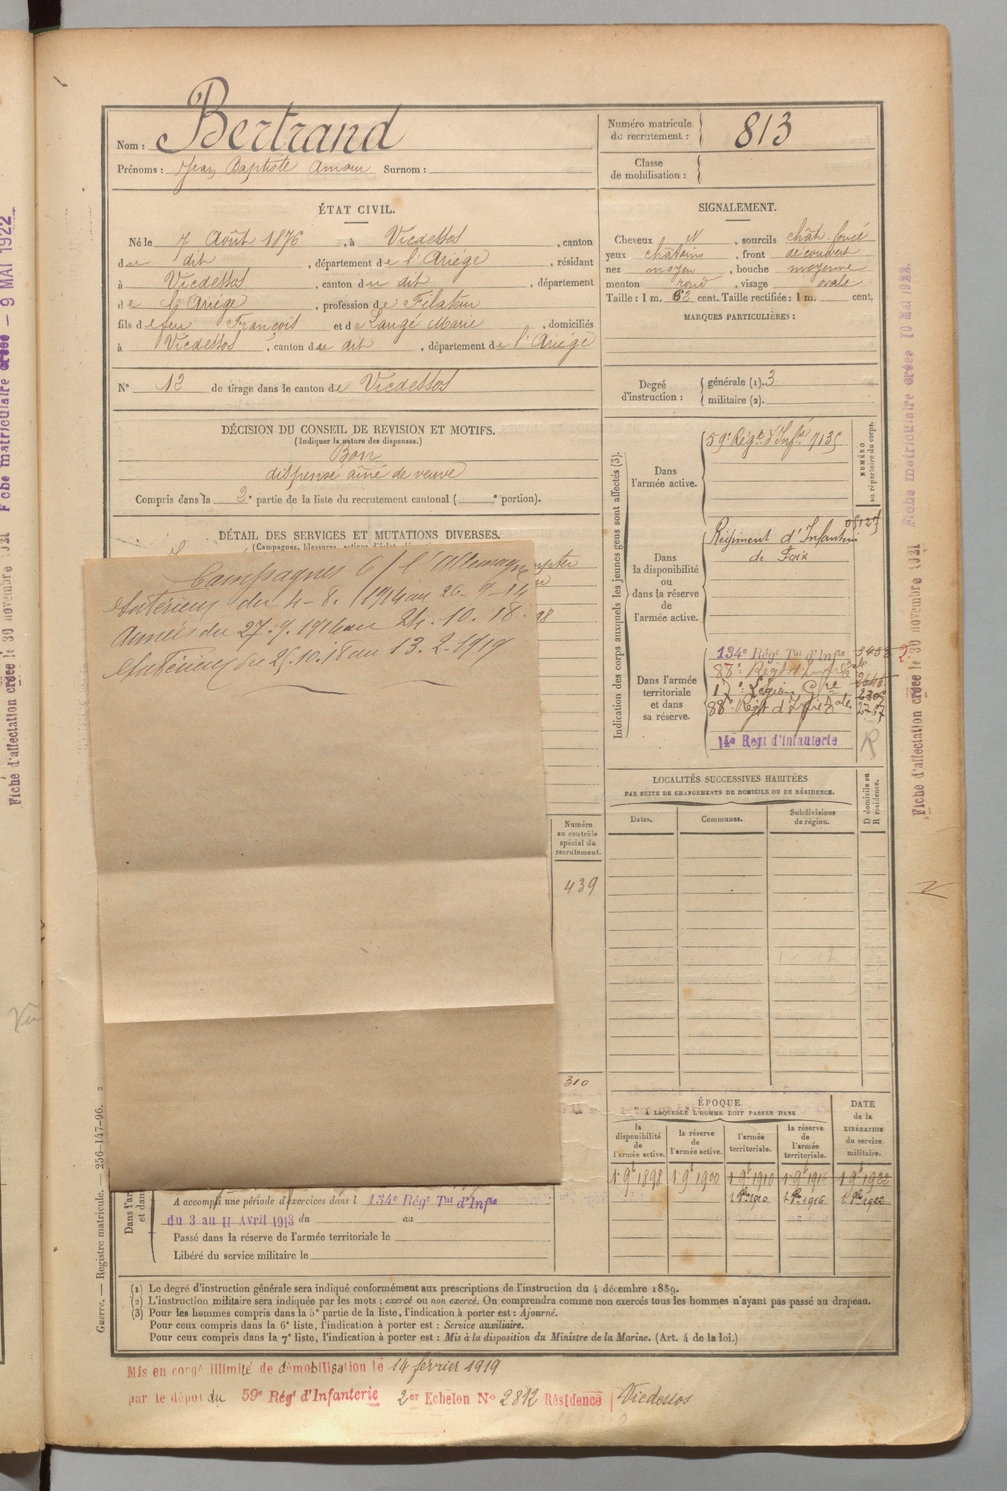 Nom : Bertrand
Prénoms : Jean Baptiste Amour Surnom :
Numéro matricule du recrutement : 813
Classe de mobilisation :
ÉTAT CIVIL.
Né le 7 Août 1876, à Vicdessos, canton
du dit, département de l'Ariège, résidant
à Vicdessos, canton du dit, département
de l'Ariège, profession de Filateur
fils de feu François et de Laugé Marie, domiciliés
à Vicdessos, canton du dit, département de l'Ariège
N° 12 de tirage dans le canton de Vicdessos
DÉCISION DU CONSEIL DE REVISION ET MOTIFS.
(Indiquer la nature des dispenses.)
Bon
dispensé aîné de veuve
Compris dans la 2e partie de la liste du recrutement cantonal ( e portion).
DÉTAIL DES SERVICES ET MUTATIONS DIVERSES.
Campagnes c/ l'Allemagne
Intérieur du 4-8-1914 au 26-9-14
Années du 27.9.1914 au 24.10.18
Intérieur du 25.10.18 au 13.2.1919
Numéro au contrôle spécial du recrutement.
439
310
SIGNALEMENT.
Cheveux N, sourcils chât. foncé
yeux châtains, front découvert
nez moyen, bouche moyenne
menton rond, visage ovale
Taille : 1 m. 62 cent. Taille rectifiée : 1 m. cent.
MARQUES PARTICULIÈRES :
Degré d'instruction :
générale (1). 3
militaire (2).
Indication des corps auxquels les jeunes gens sont affectés (3).
NUMÉRO au répertoire du corps.
Dans l'armée active.
59e Régt d'Infie 7135
Dans la disponibilité ou dans la réserve de l'armée active.
Régiment d'Infanterie
de Foix
Dans l'armée territoriale et dans sa réserve.
134e Régt Tal d'Infie
14e Regt d'Infanterie
R
LOCALITÉS SUCCESSIVES HABITÉES
PAR SUITE DE CHANGEMENTS DE DOMICILE OU DE RÉSIDENCE.
D domicile ou R résidence.
Dates.
Communes.
Subdivisions de région.
ÉPOQUE
A LAQUELLE L'HOMME DOIT PASSER DANS
DATE de la LIBÉRATION du service militaire.
la disponibilité de l'armée active.
la réserve de l'armée active.
l'armée territoriale.
la réserve de l'armée territoriale.
A accompli une période d'exercices dans l 134e Régt Tal d'Infie
du 3 au 11 Avril 1913 du au
Passé dans la réserve de l'armée territoriale le
Libéré du service militaire le
(1) Le degré d'instruction générale sera indiqué conformément aux prescriptions de l'instruction du 4 décembre 1889.
(2) L'instruction militaire sera indiquée par les mots : exercé ou non exercé. On comprendra comme non exercés tous les hommes n'ayant pas passé au drapeau.
(3) Pour les hommes compris dans la 5e partie de la liste, l'indication à porter est : Ajourné.
Pour ceux compris dans la 6e liste, l'indication à porter est : Service auxiliaire.
Pour ceux compris dans la 7e liste, l'indication à porter est : Mis à la disposition du Ministre de la Marine. (Art. 4 de la loi.)
Mis en congé illimité de démobilisation le 14 février 1919
par le dépôt du 59e Régt d'Infanterie 2er Echelon N° 2812 Résidence Vicdessos
Guerre. — Registre matricule. — 256-147-96.
Fiche d'affectation créée le 30 novembre 1921 Fiche matriculaire créée 10 Mai 1922.
Fiche d'affectation créée le 30 novembre 1921 Fiche matriculaire créée — 9 MAI 1922